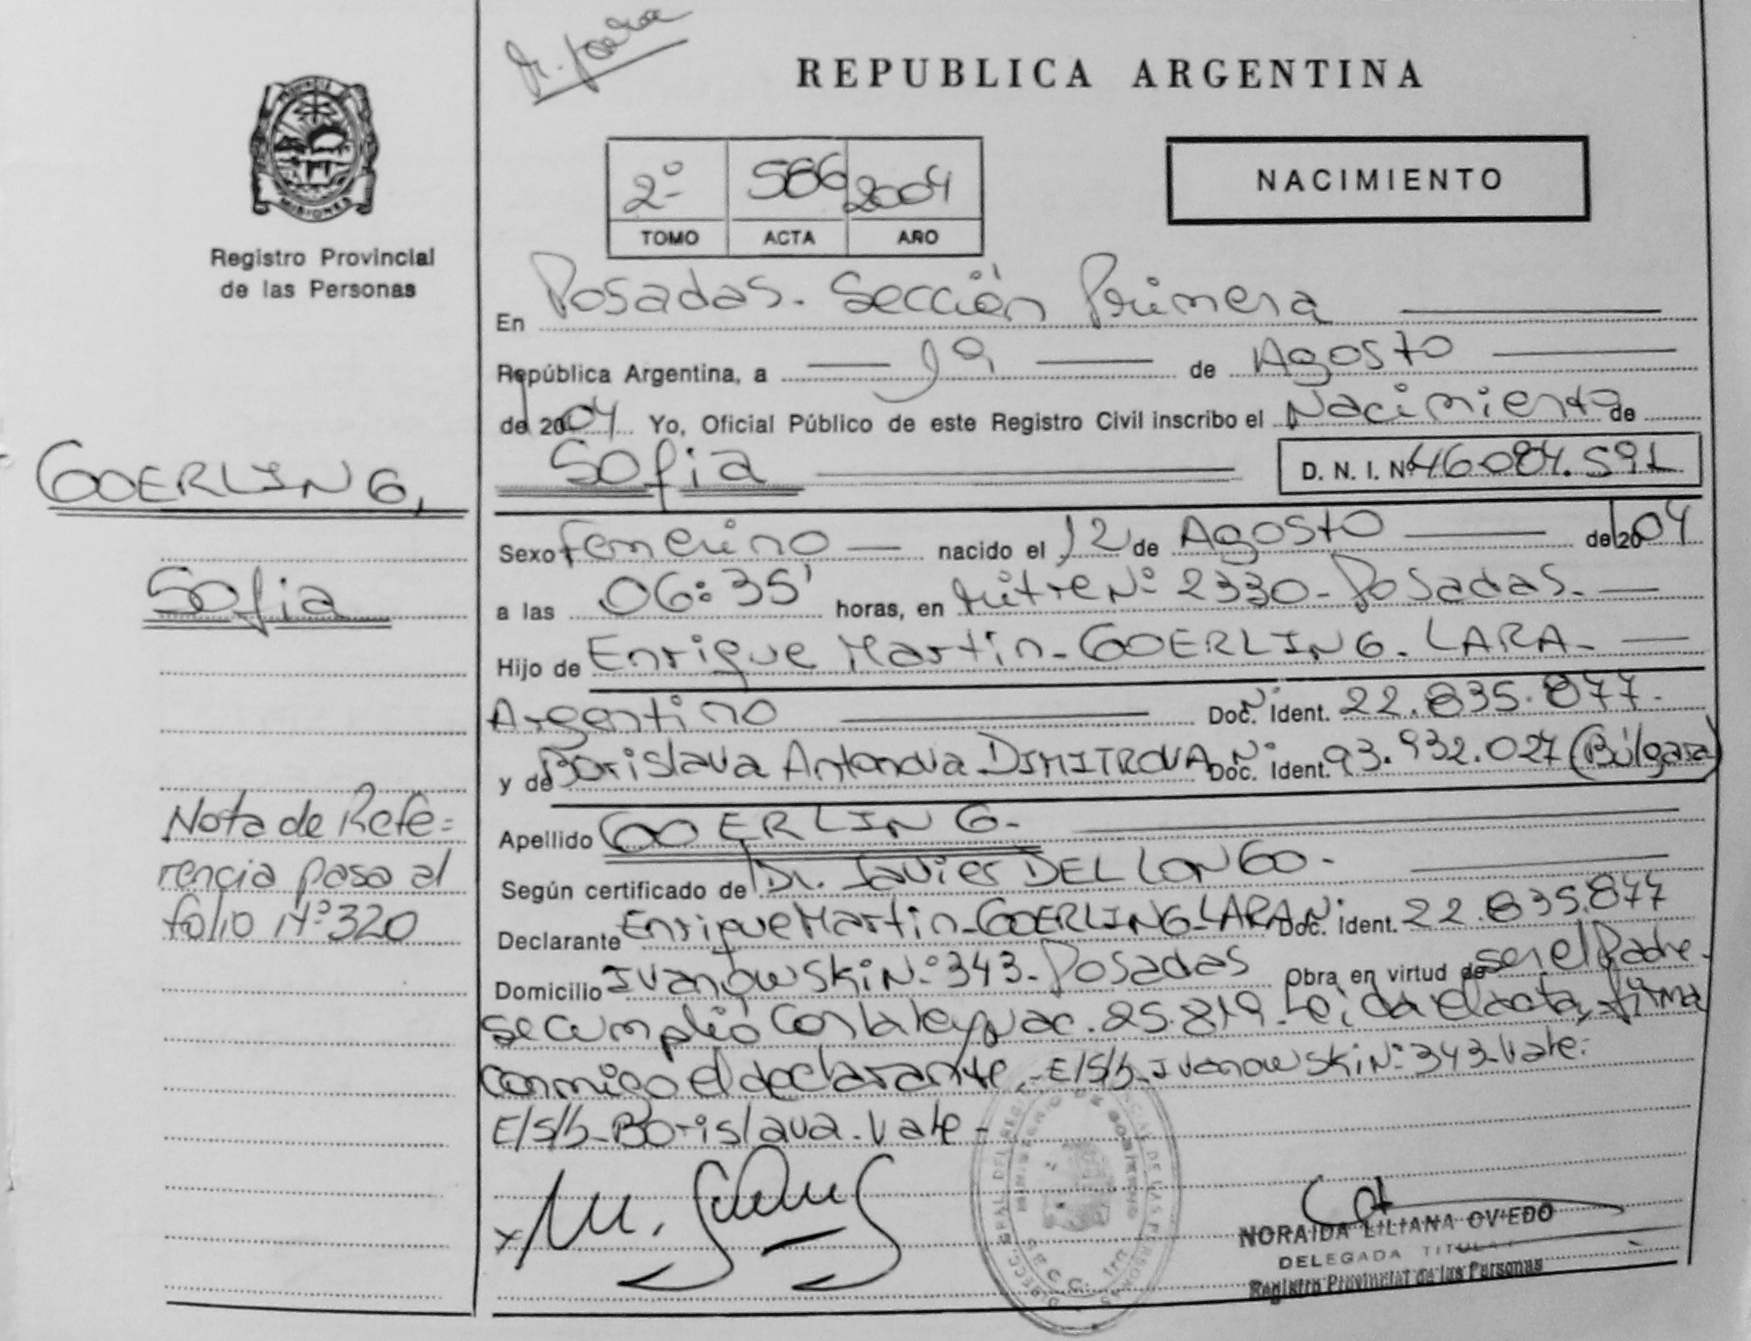 REPUBLICA ARGENTINA
MISIONES
Registro Provincial
de las Personas
2º 586 2004
TOMO ACTA AÑO
NACIMIENTO
En Posadas. Sección Primera
República Argentina, a de Agosto
de 2004 Yo, Oficial Público de este Registro Civil inscribo el Nacimiento de
Sofia D. N. I. Nº 46.084.591
GOERLING,
Sofia
Sexo Femenino nacido el 12 de Agosto de 2004
a las 06:35' horas, en Mitre Nº 2330 - Posadas.
Hijo de Enrique Martin - GOERLING - LARA -
Argentino Doc. Ident. Nº 22.835.877.
y de Borislava Antonova DIMITROVA Doc. Ident. Nº 93.932.027 (Búlgara)
Apellido GOERLING.-
Según certificado de Dr. Javier DEL LONGO -
Declarante Enrique Martin - GOERLING - LARA Doc. Ident. Nº 22.835.877
Domicilio Ivanowski Nº 343 - Posadas Obra en virtud de ser el Padre.
se cumplió con la ley Nac. 25.819. Leida el acta, firma
conmigo el declarante.- E/S/b - Ivanowski Nº 343 - Vale:
E/S/b - Borislava. Vale -
Nota de Refe=
rencia pasa al
folio Nº 320
NORAIDA LILIANA OVIEDO
DELEGADA TITULAR
Registro Provincial de las Personas